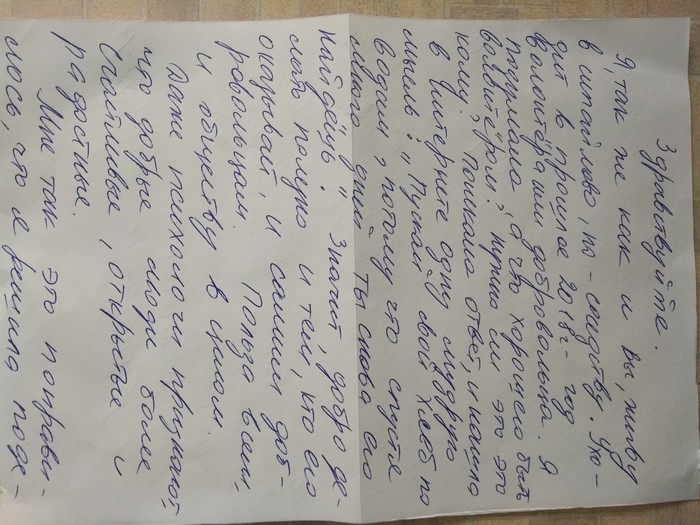 Здравствуйте.
Я, так же как и вы, живу
в Измайлово, по-соседству. Ухо-
дит в прошлое 2018г - год
волонтёрами добровольца. Я
подумала, а что хорошего быть
волонтёром? Нужно ли это это
кому? Поискала ответ, и нашла
в Интернете одну мудрую
мысль: „Пускай свой хлеб по
водам, потому что спустя
много дней ты снова его
найдёшь." Значит, добро де-
лать полезно и тем, кто его
оказывает, и самим доб-
ровольцам. Польза всем,
и обществу в целом.
Даже психологи признают,
что добрые люди более
счастливые, открытые и
радостные.
Мне так это понрави-
лось, что я решила поде-